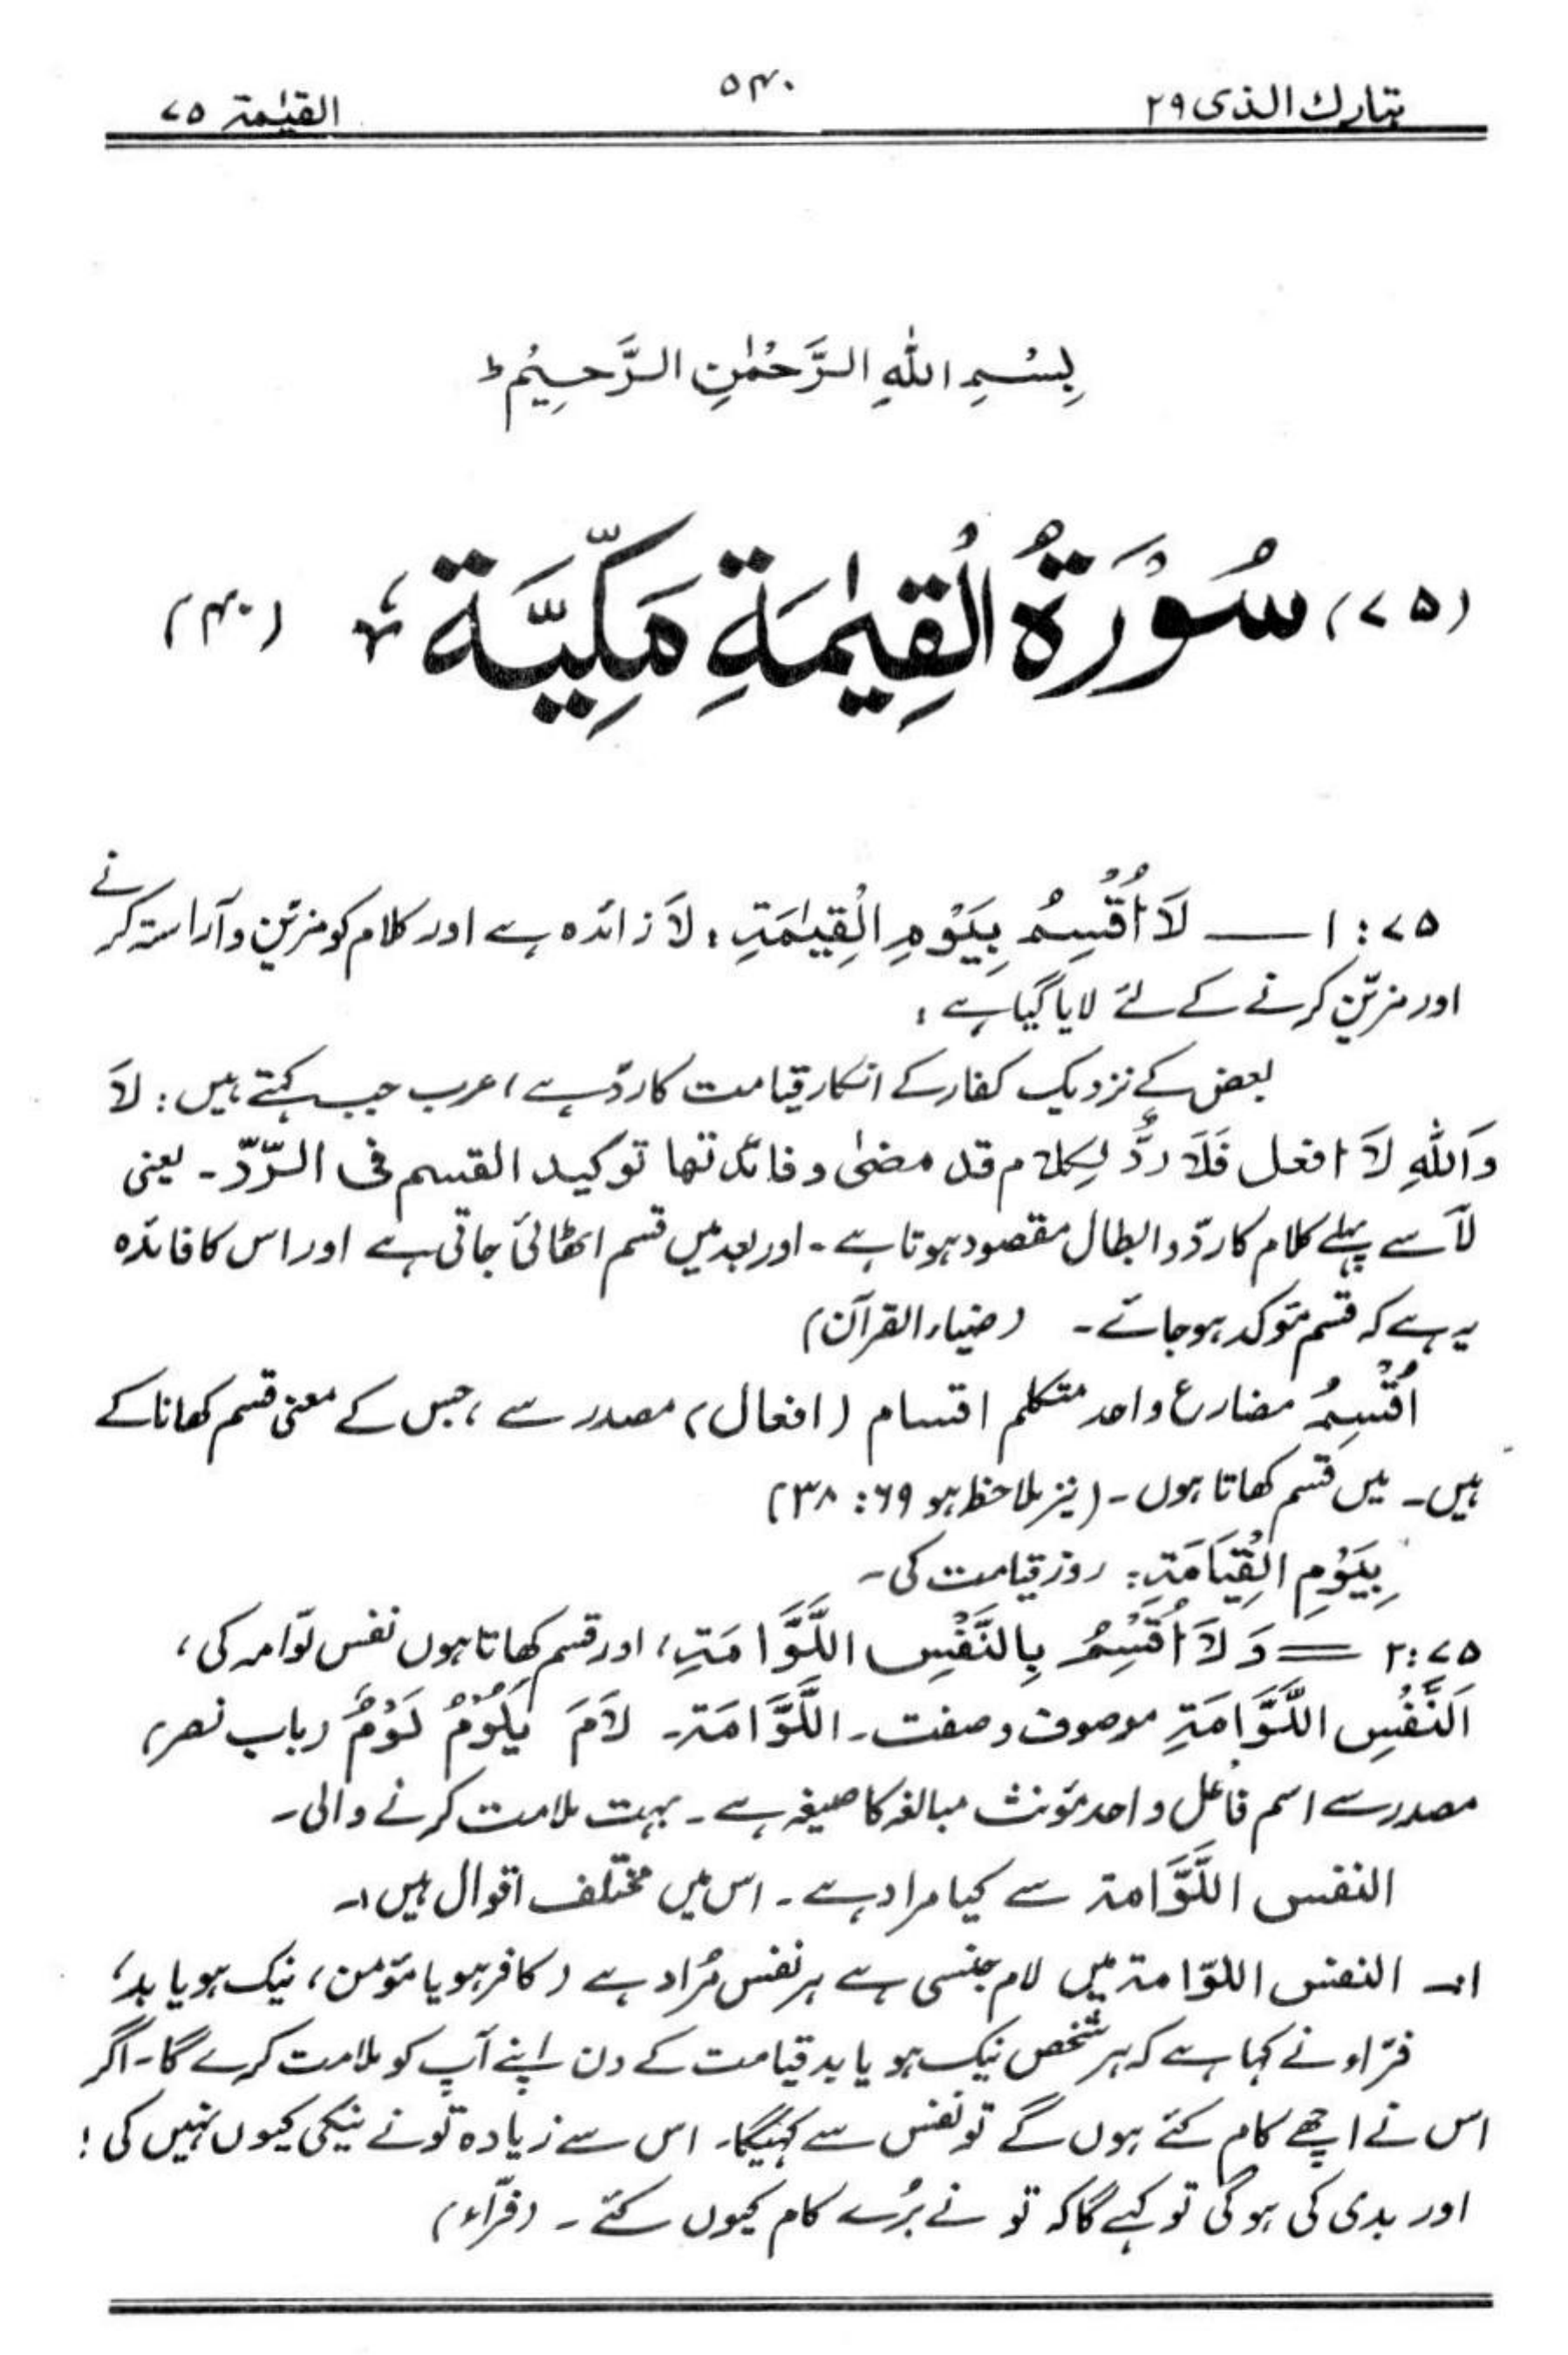 تبارك الذی ۲۹
۵۴۰
القیٰمة ۷۵
بِسْمِ اللّٰهِ الرَّحْمٰنِ الرَّحِیْمِ ط
(۷۵) سُوْرَةُ الْقِیٰمَةِ مَكِّیَّةٌ (۴۰)
۷۵ : ۱ — لَا اُقْسِمُ بِیَوْمِ الْقِیٰمَةِ : لَا زائدہ ہے اور کلام کو مزیّن و آراستہ کرنے
اور مزیّن کرنے کے لئے لایا گیا ہے :
بعض کے نزدیک کفار کے انکار قیامت کا ردّ ہے ، عرب جب کہتے ہیں : لَا
وَاللّٰهِ لَا افعل فَلَا ردٌّ لِكلام قد مضیٰ و فائدتها توكید القسم فی الرّدّ ۔ یعنی
لَا سے پہلے کلام کا ردّ و ابطال مقصود ہوتا ہے ۔ اور بعد میں قسم اٹھائی جاتی ہے اور اس کا فائدہ
یہ ہے کہ قسم مؤکد ہو جائے ۔ (ضیاء القرآن)
اُقْسِمُ مضارع واحد متکلم اقسام (افعال) مصدر سے ، جس کے معنی قسم کھانا کے
ہیں ۔ میں قسم کھاتا ہوں ۔ (نیز ملاحظہ ہو ۶۹ : ۳۸)
بِیَوْمِ الْقِیَامَةِ : روز قیامت کی ۔
۷۵ : ۲ = وَ لَا اُقْسِمُ بِالنَّفْسِ اللَّوَّامَةِ ، اور قسم کھاتا ہوں نفس لوّامہ کی ،
اَلنَّفْسِ اللَّوَّامَةِ موصوف و صفت ۔ اللَّوَّامَة ۔ لَامَ یَلُوْمُ لَوْمٌ (باب نصر)
مصدر سے اسم فاعل واحد مؤنث مبالغہ کا صیغہ ہے ۔ بہت ملامت کرنے والی ۔
النفس اللَّوَّامة سے کیا مراد ہے ۔ اس میں مختلف اقوال ہیں :۔
۱:۔ النفس اللوّامة میں لام جنسی ہے ہر نفس مُراد ہے (کافر ہو یا مؤمن ، نیک ہو یا بد)
فرّاء نے کہا ہے کہ ہر شخص نیک ہو یا بد قیامت کے دن اپنے آپ کو ملامت کرے گا ۔ اگر
اس نے اچھے کام کئے ہوں گے تو نفس سے کہیگا ۔ اس سے زیادہ تو نے نیکی کیوں نہیں کی !
اور بدی کی ہو گی تو کہے گا کہ تو نے بُرے کام کیوں کئے ۔ (فرّاء)